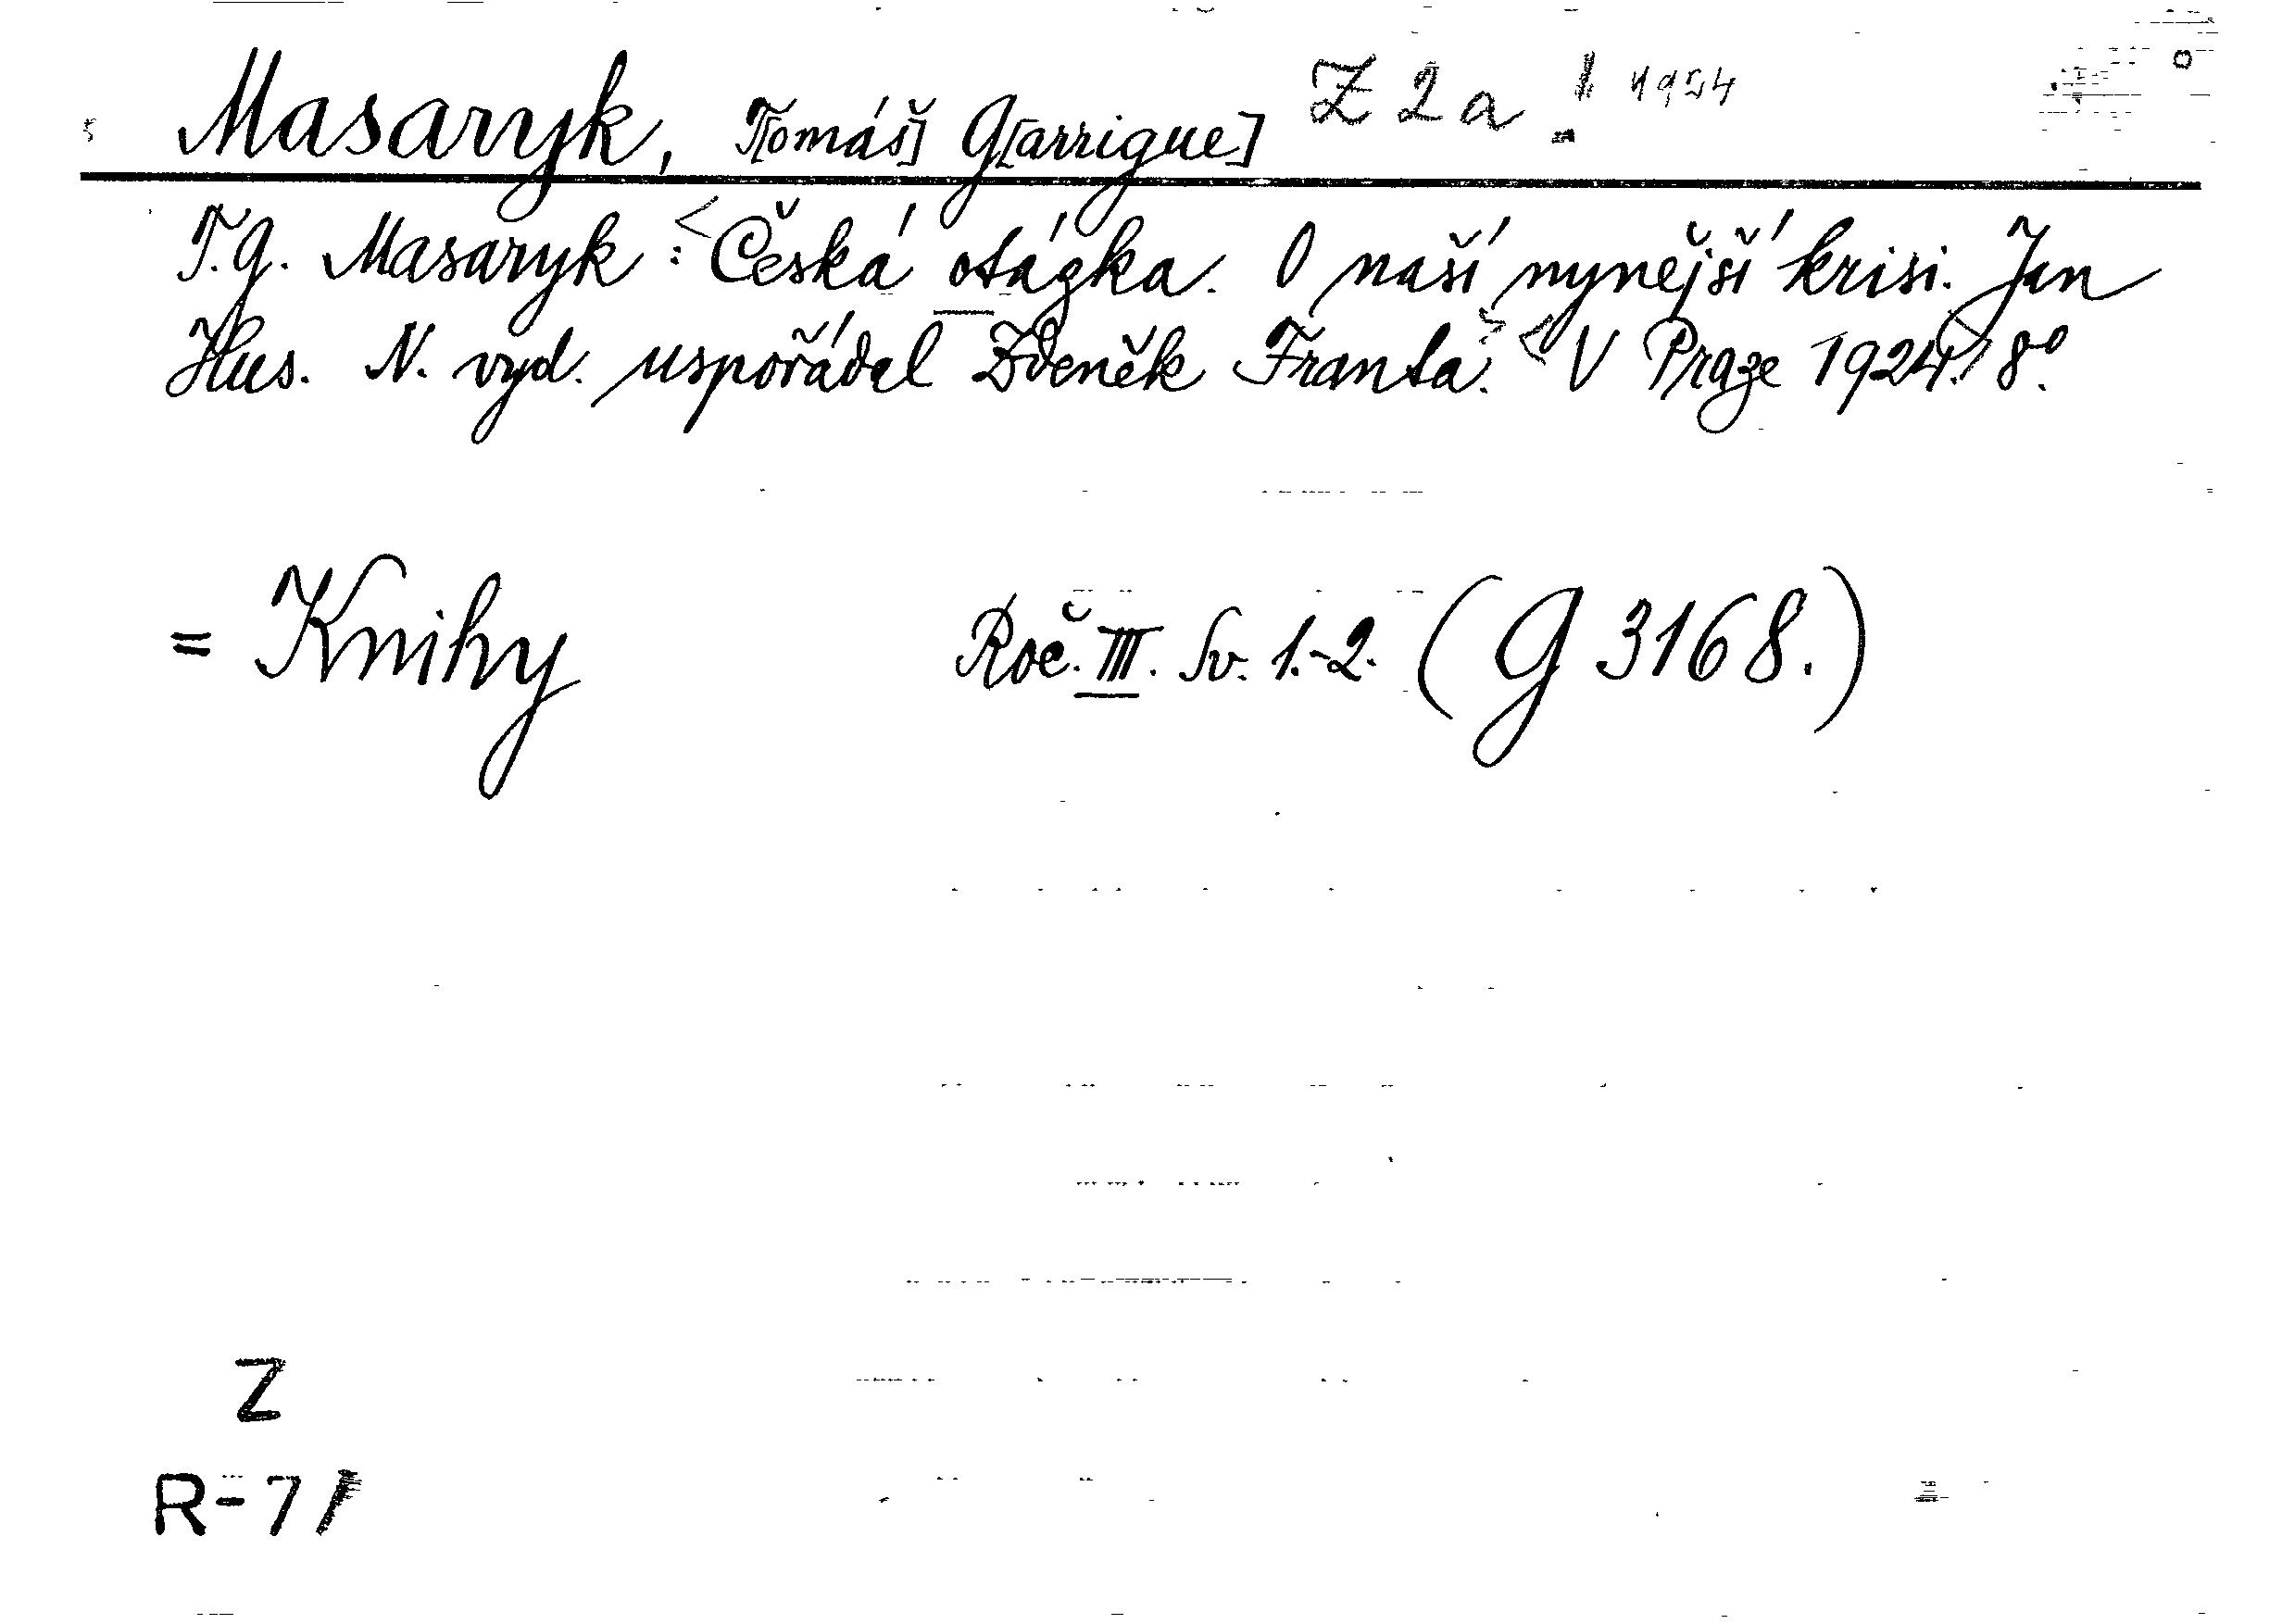 Masaryk, T[omáš] G[arrigue] Z 2a ! 1924
T. G. Masaryk: <Česká otázka. O naší nynější krisi. Jan
Hus. N. vyd. uspořádal Zdeněk Franta.> <V Praze 1924.> 8°.
= Knihy Roč. III. Sv. 1.-2. (G 3168.)
Z
R-77